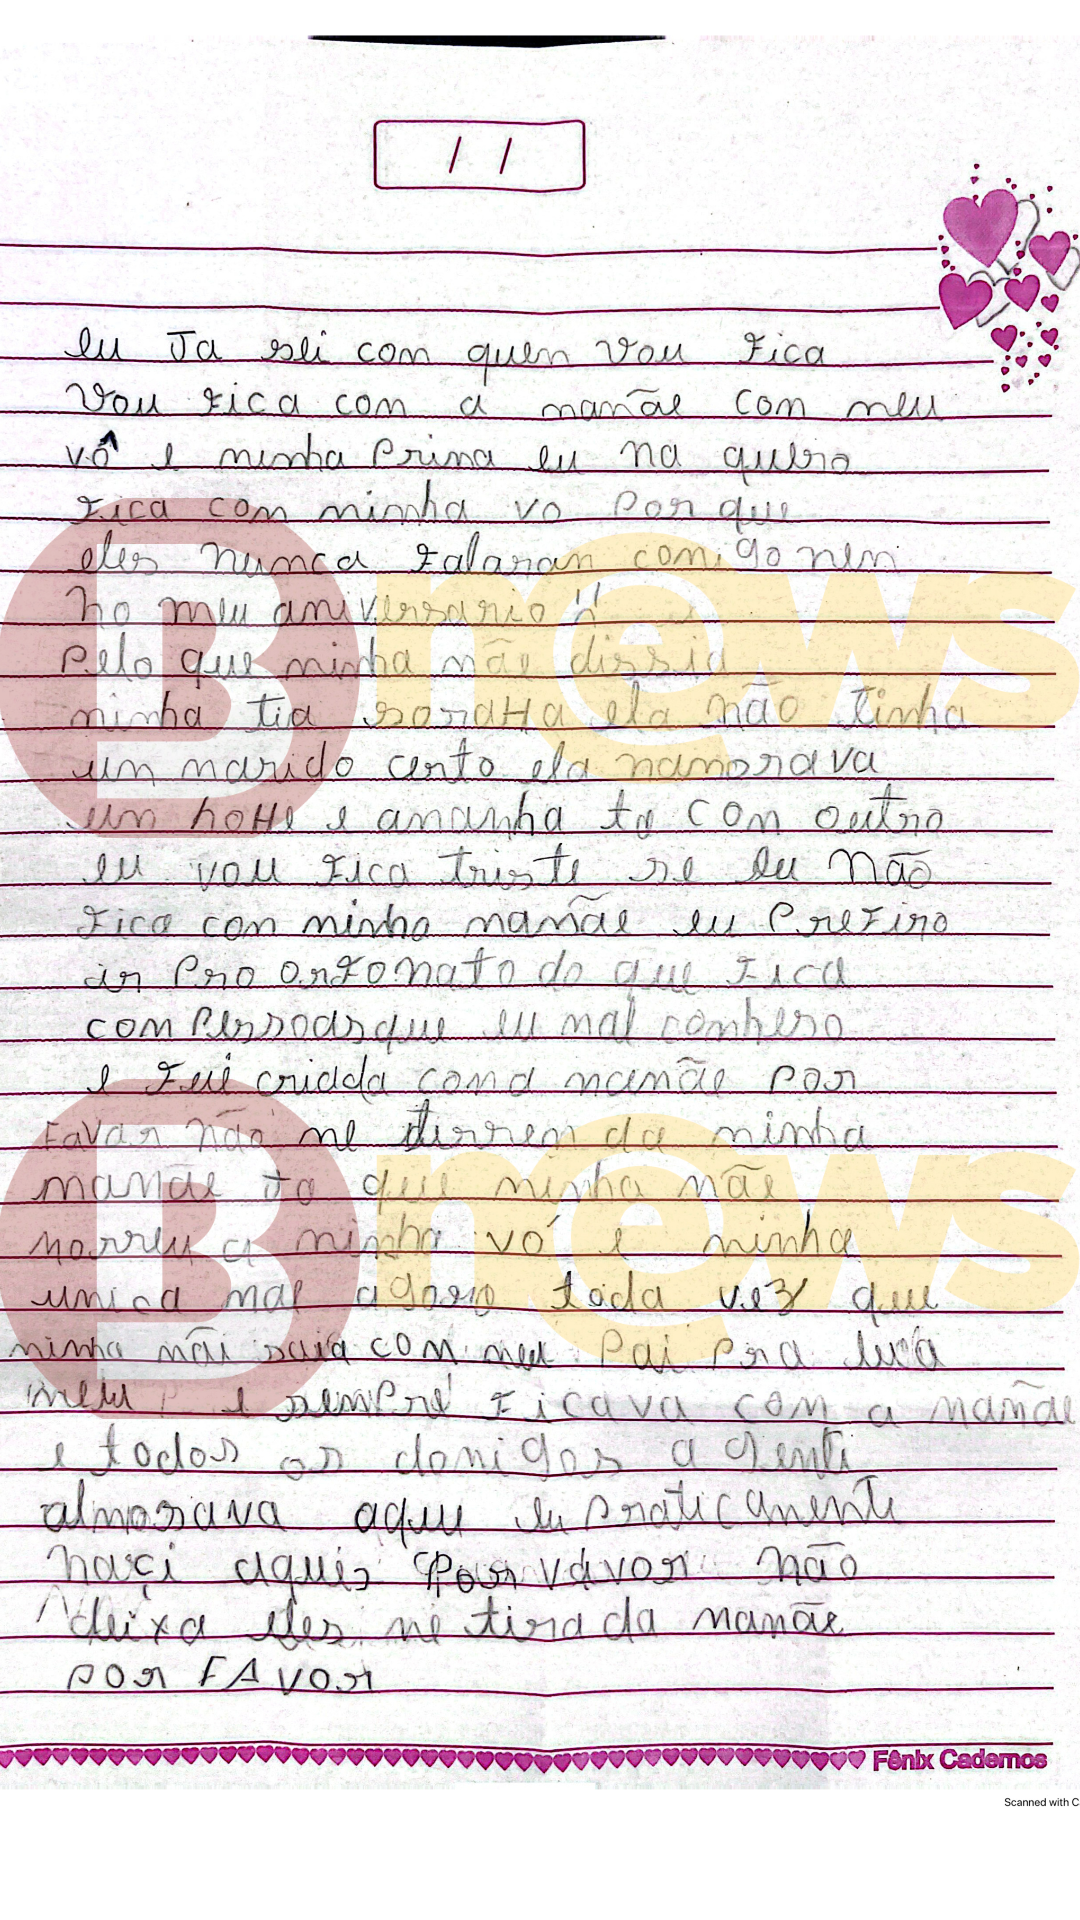 / /
eu Ja sei com quen vou Fica
Vou Fica com a mamãe com meu
vô e minha Prima eu na quero
Fica com minha vo Por que
eles nunca Falaram comigo nem
no meu aniversario
Pelo que minha mãe dissia
minha tia ela não tinha
um marido certo ela namorava
um hoHe e amanha ta com outro
eu vou Fica triste se eu não
Fica com minha mamãe eu PreFiro
ir Pro orFonato do que Fica
com Pessoas que eu mal conheso
e Fui criada com a mamãe Por
Favor não me tirrem da minha
mamãe Ja que minha mãe
morreu a minha vó e minha
unica mãe agora toda vez que
minha mãi saia com meu Pai Pra
meu e semPre Ficava com a mamãe
e todos os domigos a genti
almosava aqui eu Praticamente
naçi aqui Por vavor não
deixa eles me tira da mamãe
POR FAVOR
Fênix Cadernos
Scanned with C
Bn@ws
Bn@ws